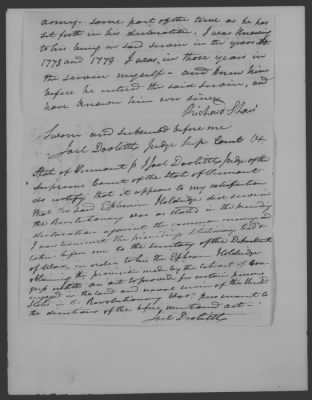 army. some part of the time as he has
set forth in his declaration. I was knowing
to his being in said service in the years
1778 and 1779 I was, in those years in
the service myself – and knew him
before he entered the said service, and
have known him ever since
Richard Shaw
Sworn and subscribed before me
Joel Doolittle Judge Sup. Court
State of Vermont I Joel Doolittle Judge of the
Supreme Court of the State of Vermont
do certify that it appears to my satisfaction
that the said Ephraim Holdridge did serve in
the Revolutionary war as stated in the preceding
declaration against the common enemy and
I now transmit the preceding testimony
taken before me to the secretary of the Department
of War, in order to his the Ephraim Holdridge
obtaining the provision made by the
an act to provide for certain persons
engaged in the land and naval service of the United
States in the Revolutionary War; pursuant to
the directions of the before mentioned act —
Joel Doolittle